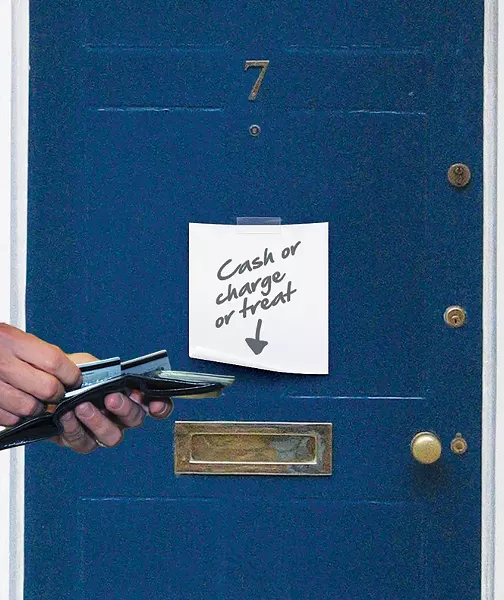 7
Cash or
charge
or treat